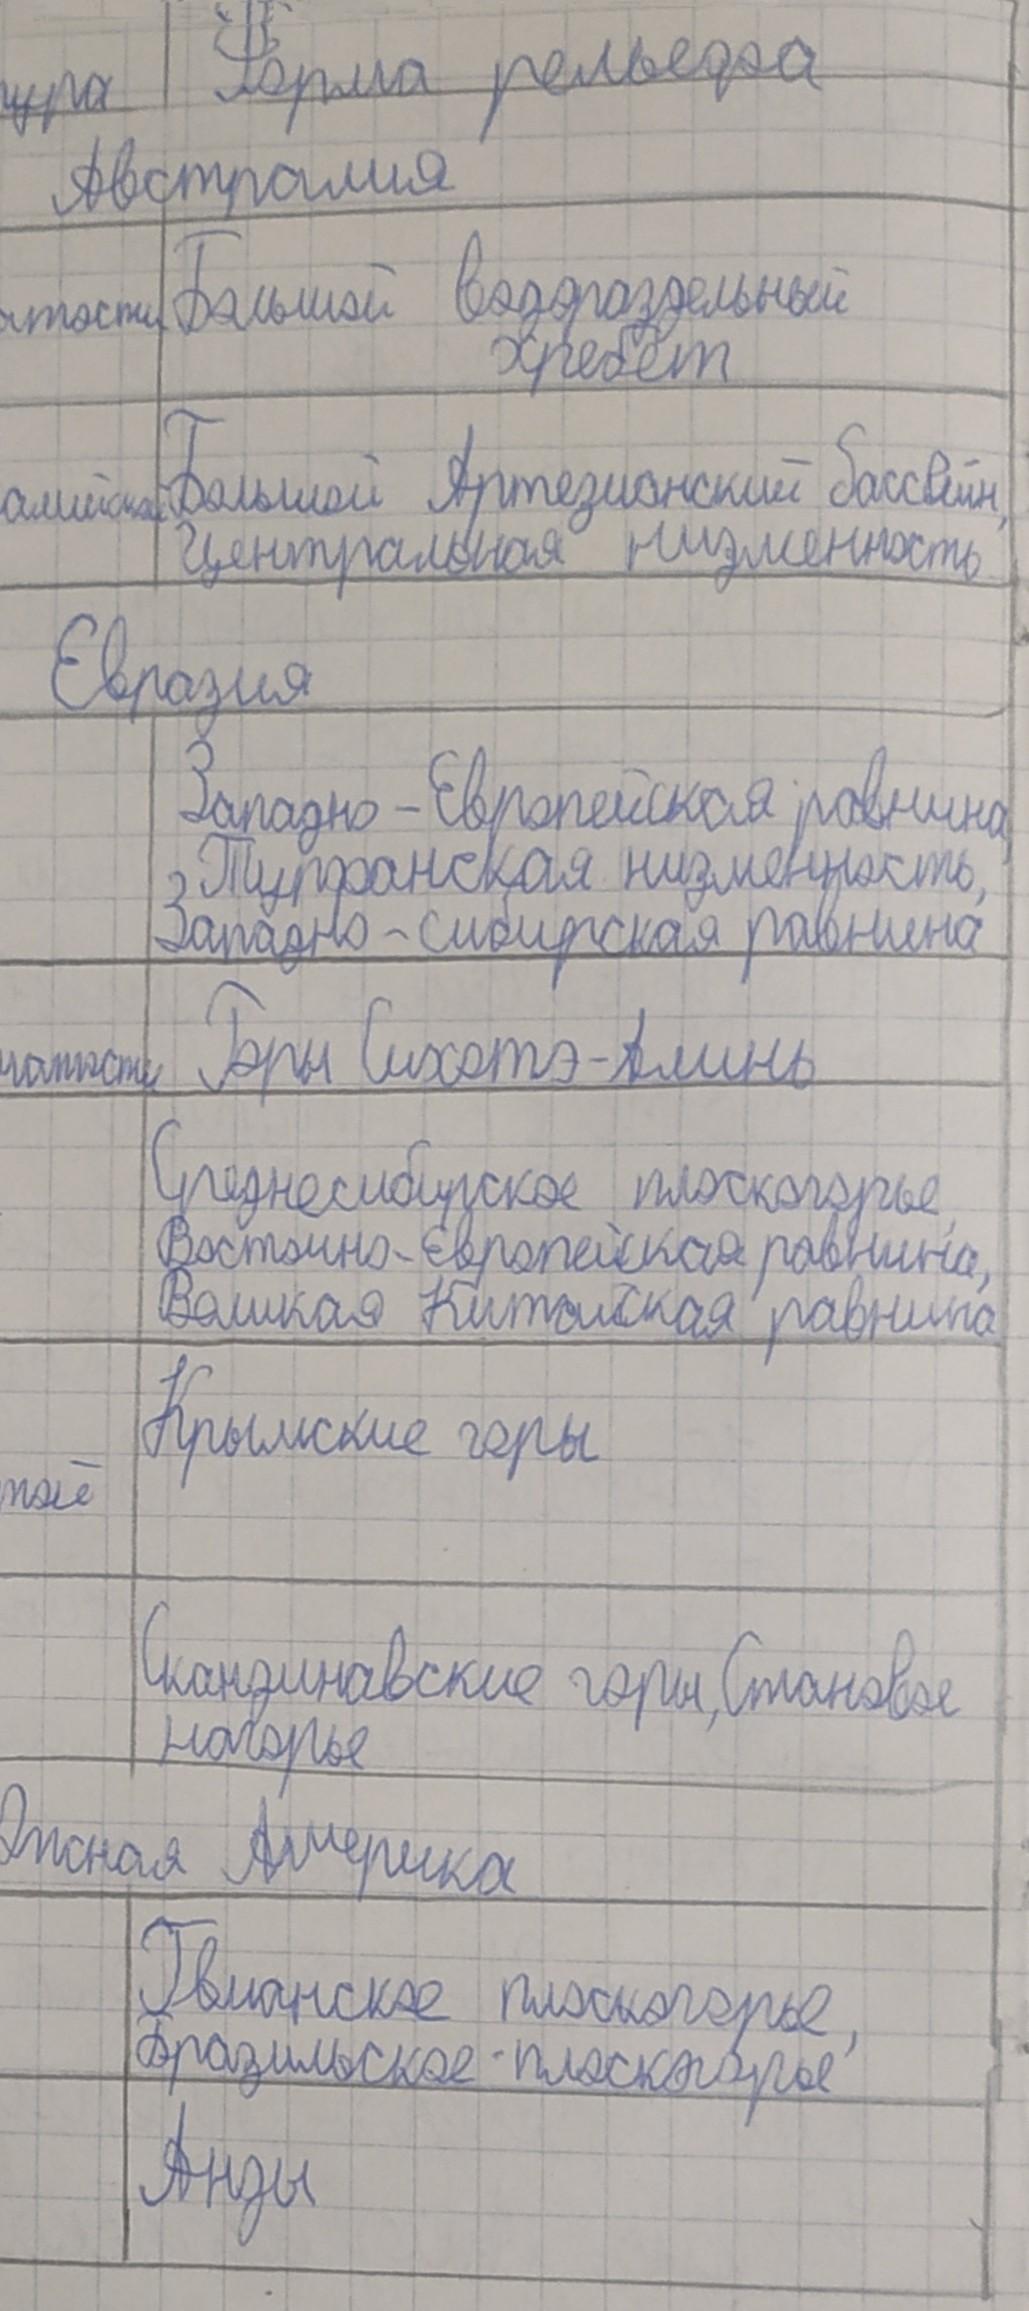 Форма рельефа
Австралия
Большой водораздельный
хребет
Большой Артезианский бассейн,
Центральная низменность
Евразия
Западно-Европейская равнина,
Турфанская низменность,
Западно-сибирская равнина
Горы Сихотэ-Алинь
Среднесибирское плоскогорье,
Восточно-Европейская равнина,
Великая Китайская равнина
Крымские горы
той
Скандинавские горы, Становое
нагорье
Южная Америка
Гвианское плоскогорье,
Бразильское-плоскогорье
Анды